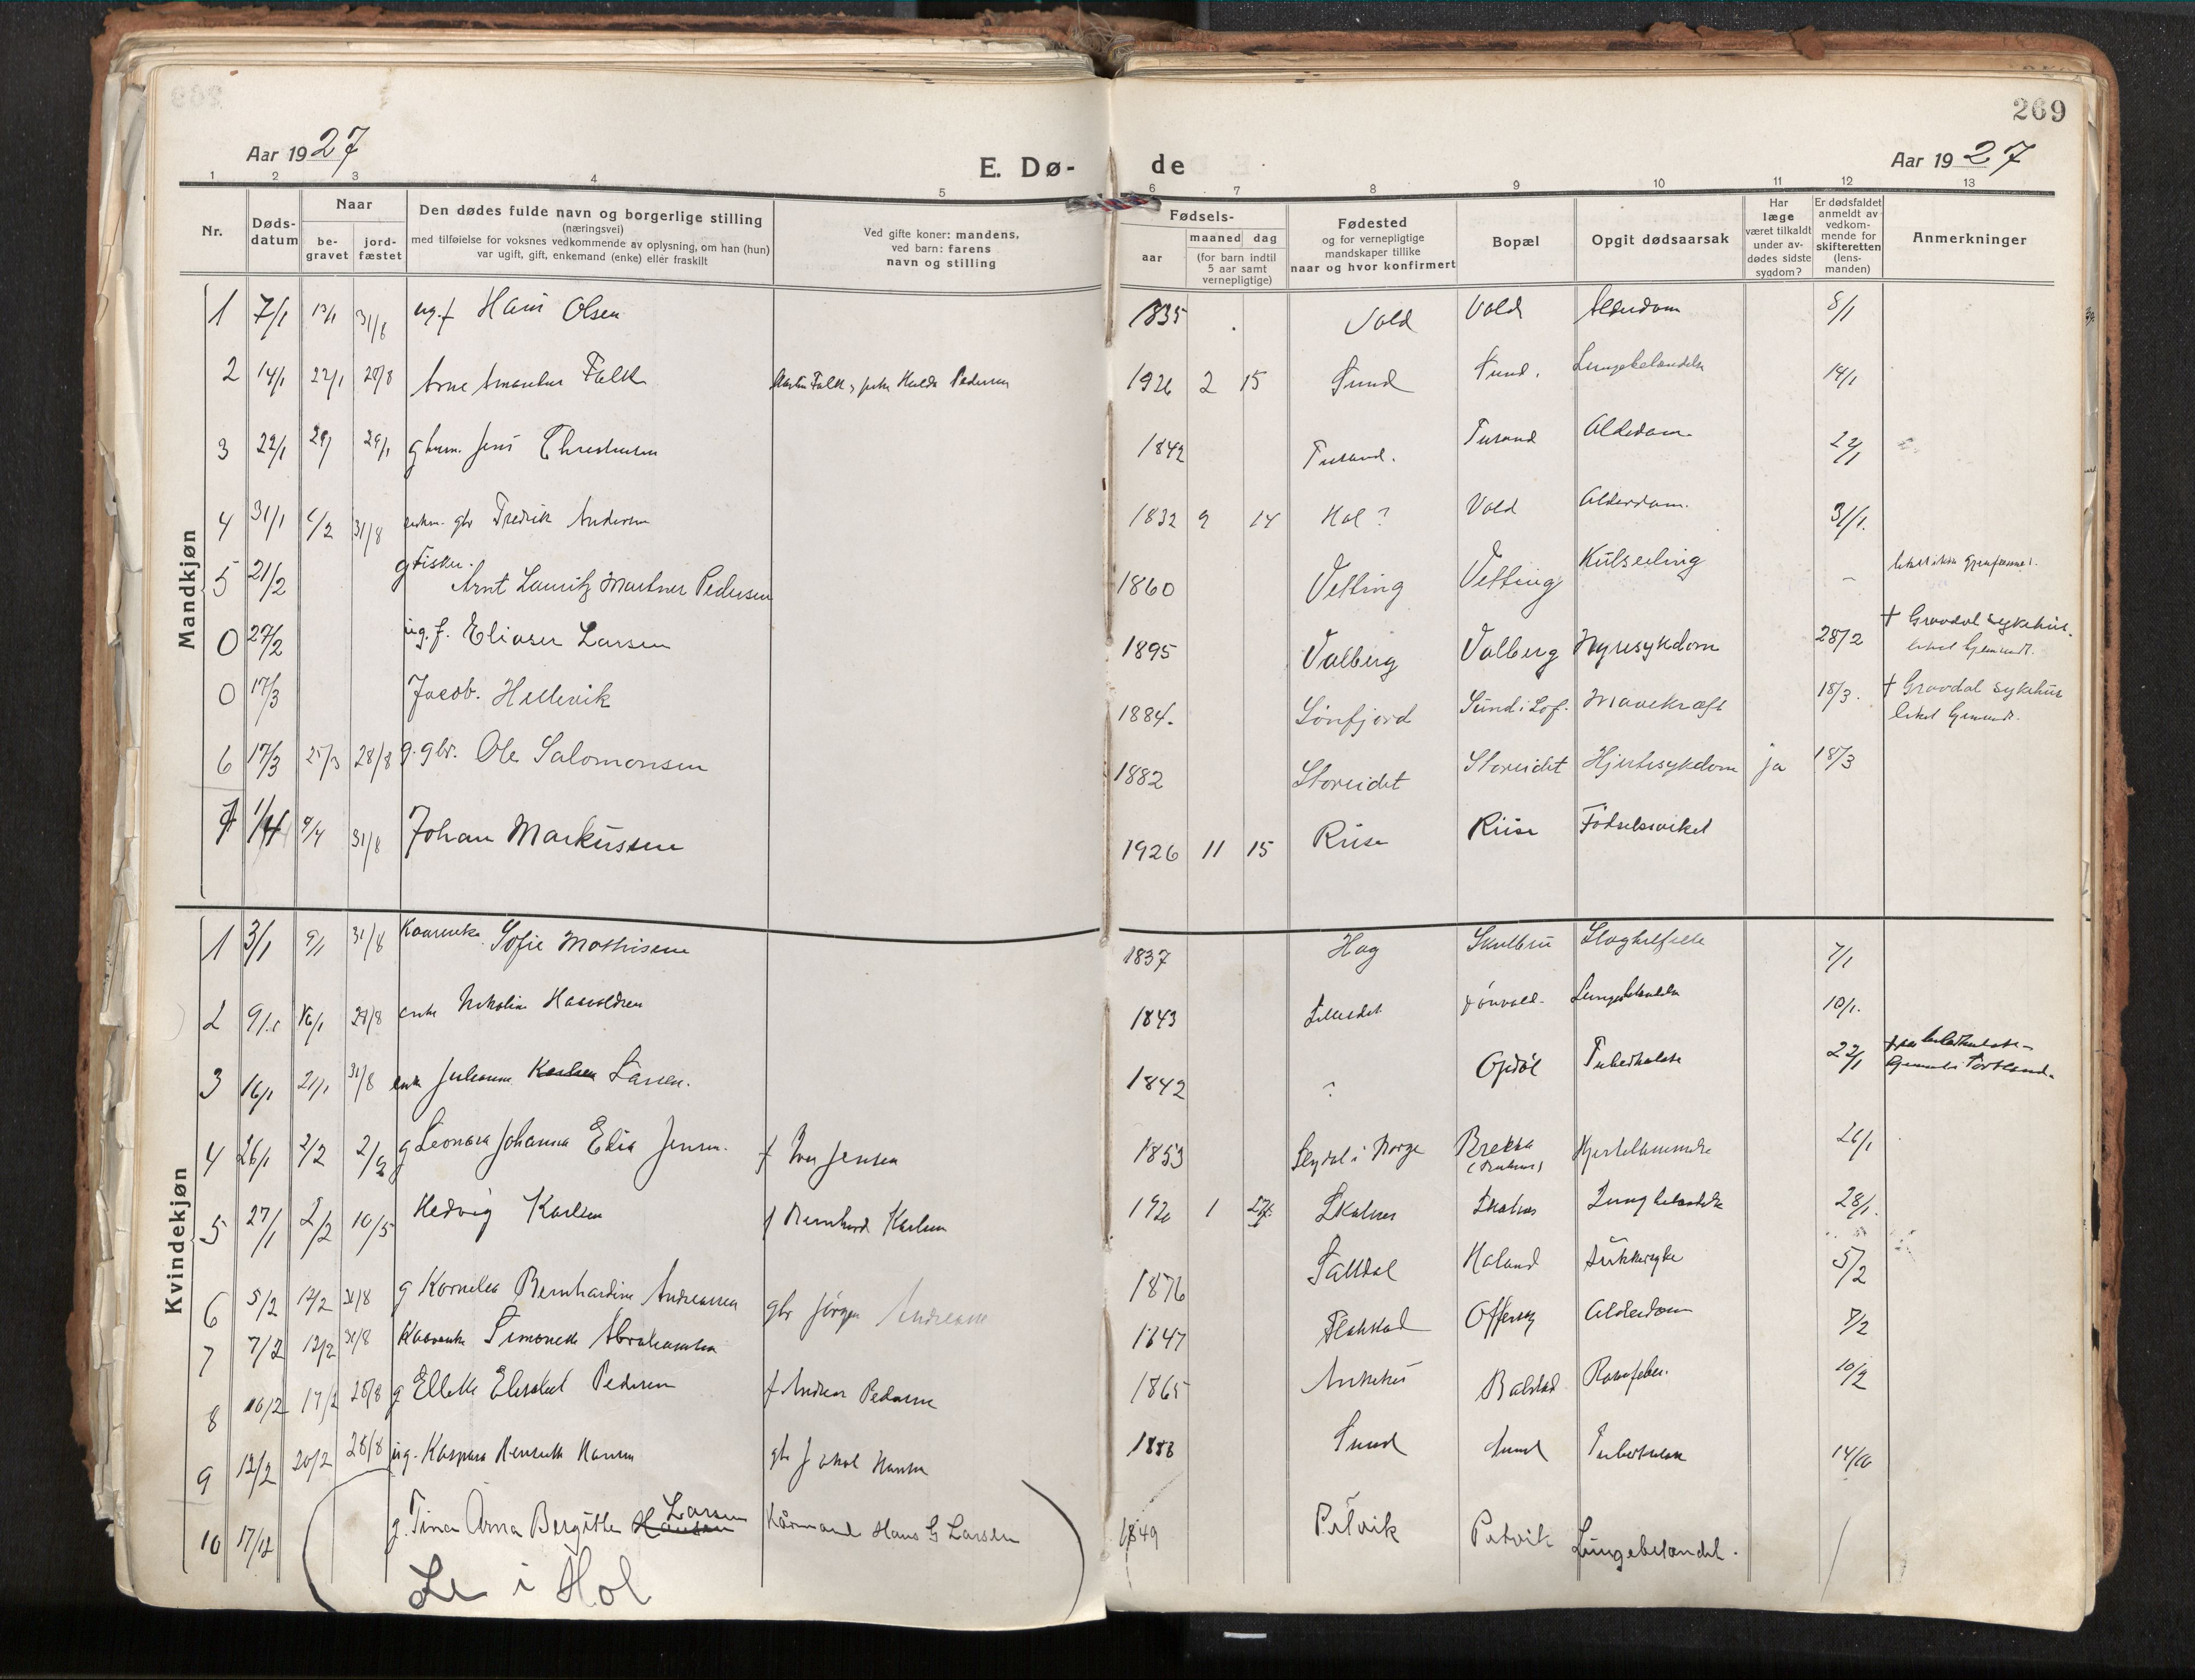 269
Aar 1927
E. Dø-
de
Aar 1927
1 2 3 4 5 6 7 8 9 10 11 12 13
Nr.
Døds-
datum
Naar
be-
gravet
jord-
fæstet
Den dødes fulde navn og borgerlige stilling
(næringsvei)
med tilføielse for voksnes vedkommende av oplysning, om han (hun)
var ugift, gift, enkemand (enke) eller fraskilt
Ved gifte koner: mandens,
ved barn: farens
navn og stilling
Fødsels-
aar
maaned dag
(for barn indtil
5 aar samt
vernepligtige)
Fødested
og for vernepligtige
mandskaper tillike
naar og hvor konfirmert
Bopæl
Opgit dødsaarsak
Har
læge
været tilkaldt
under av-
dødes sidste
sygdom?
Er dødsfaldet
anmeldt av
vedkom-
mende for
skifteretten
(lens-
manden)
Anmerkninger
Mandkjøn
1 7/1 13/1 31/8 ug. f Hans Olsen 1835 Vold Vold Alderdom 8/1
2 14/1 22/1 28/8 Arne Falk Falk, Hulda Pedersen 1926 2 15 Sund Sund. Lungebetændelse 14/1
3 22/1 29/1 g Jens Christensen 1842 Alderdom 22/1
4 31/1 31/8 gbr Fredrik Andersen 1832 9 14 Hol? Vold Alderdom. 31/1.
5 21/2 g Fisker.
Arnt Lauritz Martner Pedersen 1860 Vetting Vetting Kulseiling -
0 27/2 ug. f. Eliaser Larsen 1895 Valberg Valberg Nyresykdom 28/2 † Gravdal sykehus.
0 17/3 Jacob. Hellevik 1884. Sønfjord Sund i Lof. Mavekræft 18/3. † Gravdal sykehus
6 17/3 25/3 28/8 g. gbr. Ole Salomonsen 1882 Storeidet Storeidet Hjertesykdom ja 18/3
7 1/4 9/4 31/8 Johan Markussen 1926 11 15 Riise Riise Fødselssvakhet
Kvindekjøn
1 3/1 9/1 31/8 Kaarenke Sofie Mathisen 1837 Hag Skulbru 7/1
2 9/1 16/1 29/8 enke Nikoline 1843 Lilleidet Lungebetændelse 10/1.
3 16/1 21/1 31/8 enke Julianna Karlsen Larsen. 1842 ? Opdøl Tuberkulose 22/1
4 26/1 2/2 g Leonora Johanna Elia Jensen. f Iver Jensen 1853 i Norge Brekka 26/1
5 27/1 2/2 10/5 Hedvig Karlsen f Bernhard Karlsen 192 1 Skatnes Skatnes Lungebetændelse 28/1.
6 5/2 12/2 31/8 g Kornelia Bernhardine Andreassen gbr Jørgen Andreassen 1876 Saltdal Haland Sukkersyke 5/2
7 7/2 12/2 31/8 Kaarenke Simonette Abrahamsen 1847 Flakstad Offersøy Alderdom 7/2
8 10/2 17/2 28/8 g Ellette Elisabet Pedersen f Andreas Pedersen 1865 Balstad 10/2
9 12/2 20/2 28/8 ug. Kaspara Hansen gbr Hansen 1888 Sund Sund Tuberkulose
10 17/12 g. Tina Anna Bergitte Hansen Larsen Kårmand Hans G Larsen 1849 Petvik Petvik Lungebetændel.
Le i Hol